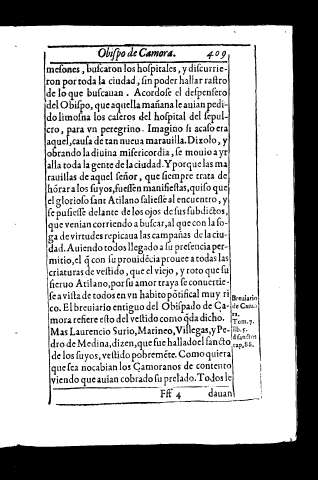 Obispo de Çamora. 409
mesones, buscaron los hospitales, y discurrie-
ron por toda la ciudad, sin poder hallar rastro
de lo que buscauan. Acordose el despensero
del Obispo, que aquella mañana le auian pedi-
do limosna los caseros del hospital del sepul-
cro, para vn peregrino. Imagino si acaso era
aquel, causa de tan nueua marauilla. Dixolo, y
obrando la diuina misericordia, se mouio a yr
alla toda la gente de la ciudad. Y porque las ma
rauillas de aquel señor, que siempre trata de
hõrar a los suyos, fuessen manifiestas, quiso que
el glorioso sant Atilano saliesse al encuentro, y
se pusiesse delante de los ojos de sus subdictos,
que venian corriendo a buscar, al que con la so-
ga de virtudes repicaua las campañas de la ciu-
dad. Auiendo todos llegado a su presencia per-
mitio, el q̃ con su prouidẽcia prouee a todas las
criaturas de vestido, que el viejo, y roto que su
sieruo Atilano, por su amor traya se conuertie-
se a vista de todos en vn habito põtifical muy ri
co. El breuiario entiguo del Obispado de Ça-
mora refiere esto del vestido como q̃da dicho.
Mas Laurencio Surio, Marineo, Villegas, y Pe-
dro de Medina, dizen, que fue hallado el sancto
de los suyos, vestido pobremẽte. Como quiera
que sea no cabian los Çamoranos de contento
viendo que auian cobrado su prelado. Todos le
Breuiario
de Çamo-
ra.
Tom. 7.
lib. 5.
cap. 88.
Fff 4 dauan